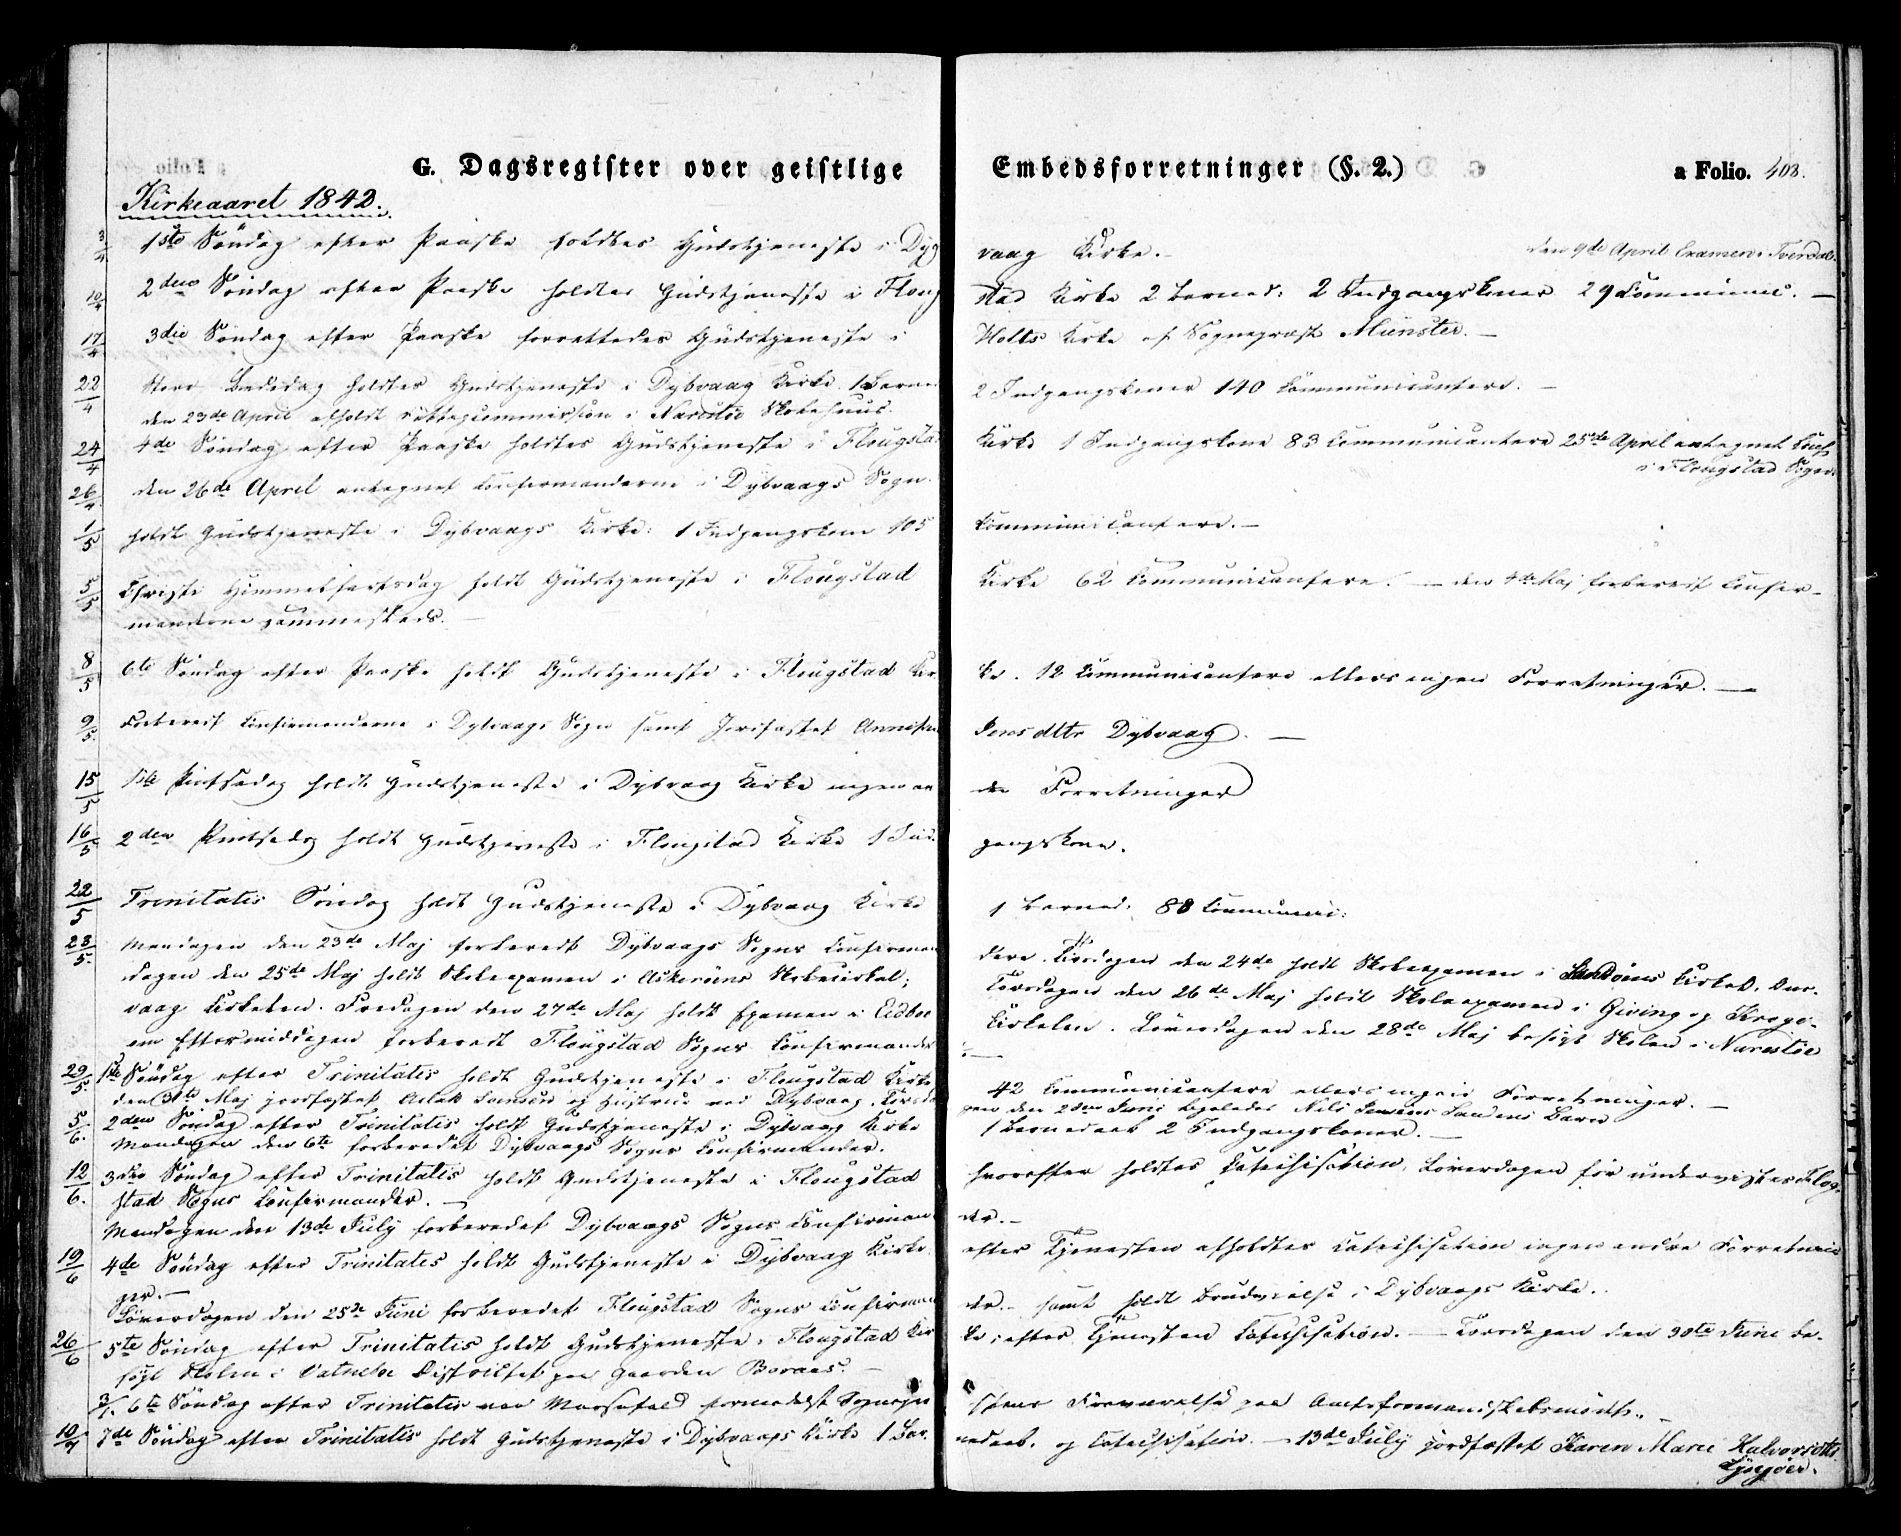 G. Dagsregister over geistlige Embedsforretninger (§. 2.) a Folio. 408.
Kirkeaaret 1842.
3/4 1ste Söndag efter Paaske holdtes Gudstjeneste i Dyb vaag Kirke. — den 9de April Examen i Tverdal.
10/4 2den Söndag efter Paaske holdtes Gudstjeneste i Floug stad Kirke 2 Barned: 2 Indgangskoner 29 Communic. —
17/4 3die Söndag efter Paaske forrettedes Gudstjeneste i Holts Kirke af Sognepræst Münster. —
22/4 Store Bededag holdtes Gudstjeneste i Dybvaag Kirke 1 Barned 2 Indgangskoner 140 Communicantere. —
den 23de April afholdt i Narestöe Skolehuus.
24/4 4de Söndag efter Paaske holdtes Gudstjeneste i Flougstad Kirke 1 Indgangskone 83 Communicantere 25de April antegnet Conf.
i Flougstad Sogn
26/4 den 26de April antegnet Confirmanderne i Dybvaags Sogn.
1/5 holdt Gudstjeneste i Dybvaags Kirke: 1 Indgangskone 105 Communicantere. —
5/5 Christi Himmelfartsdag holdt Gudstjeneste i Flougstad Kirke 62 Communicantere. — den 4de Maj forberedt Confir-
manderne sammesteds. —
8/5 6te Söndag efter Paaske holdt Gudstjeneste i Flougstad Kir ke. 12 Communicantere ellers ingen Forretninger. —
9/5. Forberedt Confirmanderne i Dybvaags Sogn samt Jordfæstet Anne Jensdttr Dybvaag. —
15/5 1ste Pintsedag holdt Gudstjeneste i Dybvaag Kirke ingen an dre Forretninger
16/5 2den Pintsedag holdt Gudstjeneste i Flougstad Kirke 1 Ind- gangskone.
22/5 Trinitatis Söndag holdt Gudstjeneste i Dybvaag Kirke 1 Barned. 88 Communic:
23/5. Mandagen den 23de Maj forberedt Dybvaags Sogns Confirman dere. Tirsdagen den 24de holdt Skoleexamen i Sandöens Cirkel. Ons-
dagen den 25de Maj holdt Skoleexamen i Askeröens Skolecirkel; Torsdagen den 26de Maj holdt Skoleexamen i Giving og Krogs-
vaag Cirkelen. Fredagen den 27de Maj holdt Examen i Eidboe Cirkelen. Löverdagen den 28de Maj besögt Skolen i Narestöe
om Eftermiddagen forberedt Flougstad Sogns Confirmander —
29/5. 1ste Söndag efter Trinitatis holdt Gudstjeneste i Flougstad Kirke 42 Communicantere ellers ingen Forretninger. —
den 31te Maj jordfæstet Aslak og Hustrue ved Dybvaag. Torsda gen den 2den Juni begravedes Nils Jensens Sandöens Barn
5/6. 2den Söndag efter Trinitatis holdt Gudstjeneste i Dybvaag Kirke 1 Barnedaab 2 Indgangskoner. —
Mandagen den 6te forberedet Dybvaags Sogns Confirmander.
12/6. 3die Söndag efter Trinitatis holdt Gudstjeneste i Flougstad hvorefter holdtes Catechisation, Löverdagen för undervistes Floug-
stad Sogns Confirmander. —
Mandagen den 13de July forberedet Dybvaags Sogns Confirman der. —
19/6 4de Söndag efter Trinitatis holdt Gudstjeneste i Dybvaag Kirke efter Tjenesten afholdtes Catechisation ingen andre Forretnin
ger. —
Löverdagen den 25de Juni forberedet Flougstad Sogns Confirman der. — samt holdt Brudevielse i Dybvaags Kirke.
26/6 5te Söndag efter Trinitatis holdt Gudstjeneste i Flougstad Kir ke; efter Tjenesten Catechisation. — Torsdagen den 30te Juni be-
sögt Skolen i Vatneboe Districtet paa Gaarden Boraas. —
3/7. 6te Söndag efter Trinitatis var Messefald formedelst Sognepr æstens Fraværelse paa Amtsformandskabsmöde. —
10/7 7de Söndag efter Trinitatis holdt Gudstjeneste i Dybvaags Kirke 1 Bar- nedaab. og Catechisation. — 13de July jordfæstet Karen Marie Halvorsdtr
Lyngöer.